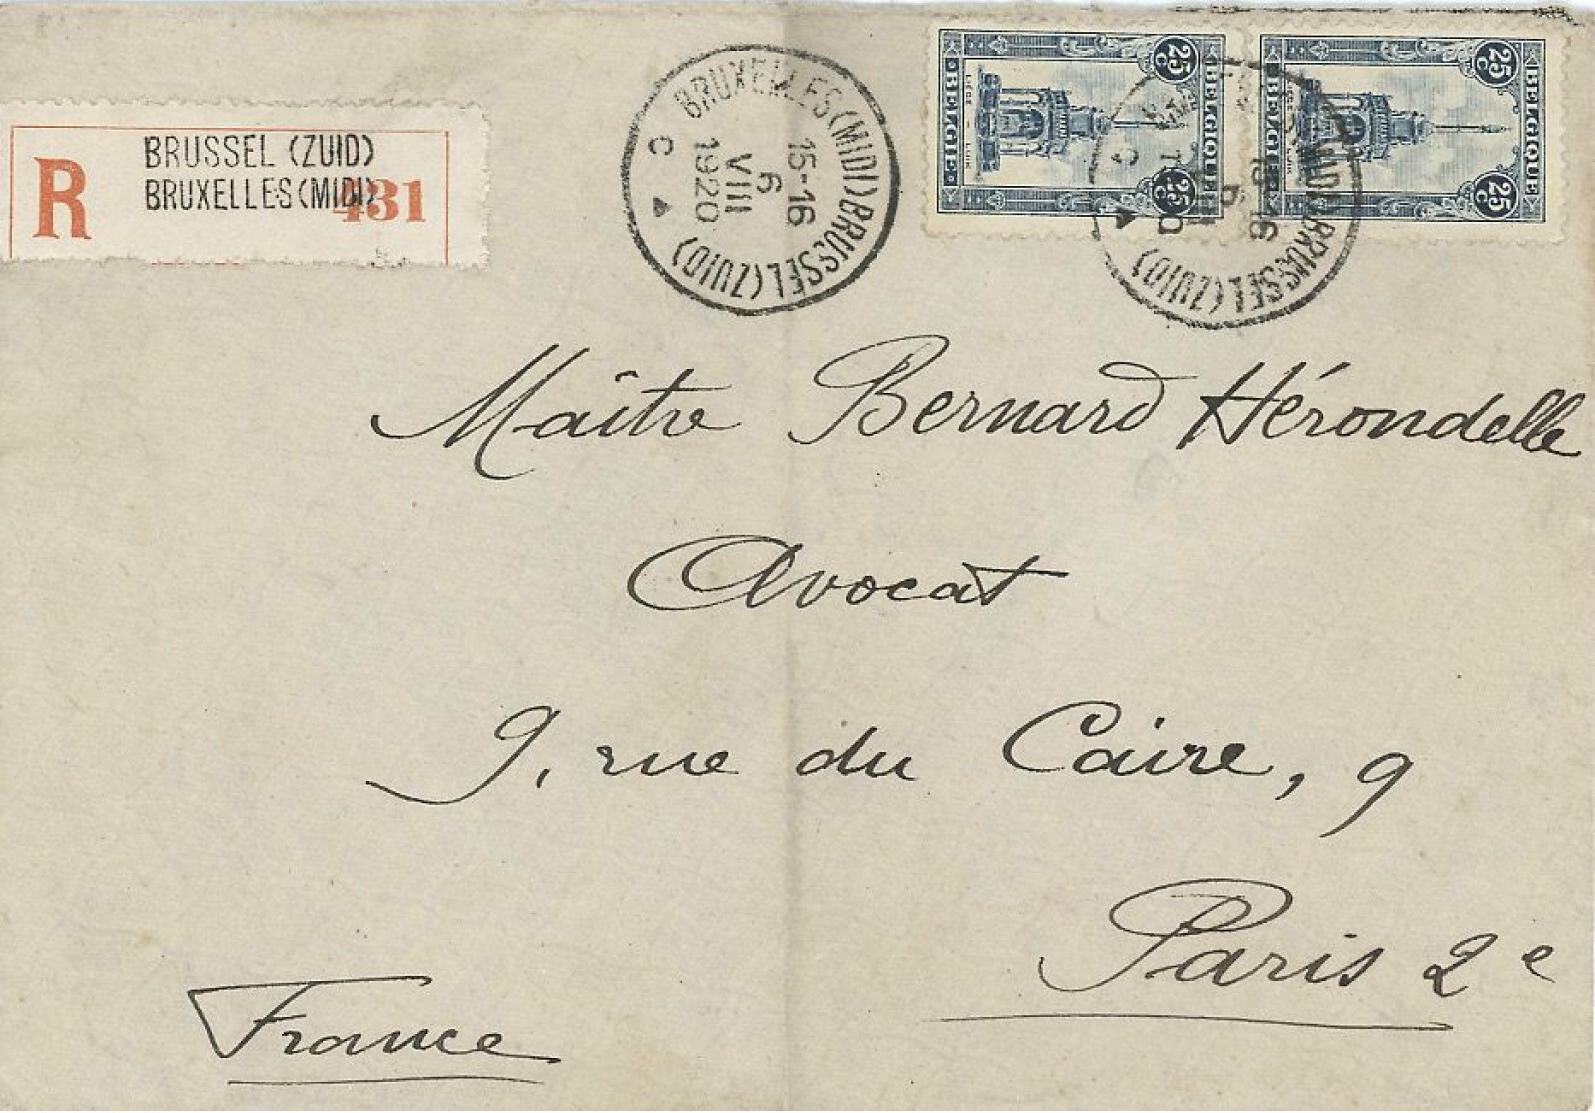 R
BRUSSEL (ZUID)
BRUXELLES (MIDI)
431
BRUXELLES (MIDI) BRUSSEL (ZUID)
15-16
6
VIII
1920
C
25 C
BELGIQUE
BELGIË
LIÉGE
LUIK
25 C
25 C
BELGIQUE
BELGIË
LUIK
25 C
BRUSSEL (ZUID)
15-16
6
C
Maître Bernard Hérondelle
Avocat
9, rue du Caire, 9
Paris 2e
France